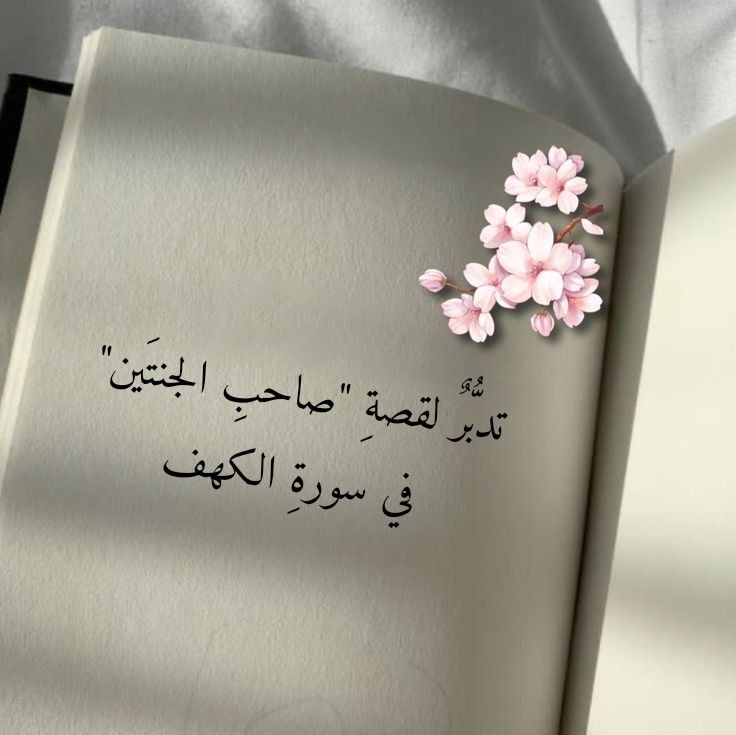 تدبُّرٌ لقصةِ "صاحبِ الجنتَين"
في سورةِ الكهف